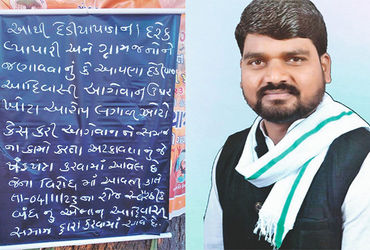 આથી દેડીયાપાડાના દરેક
વ્યાપારી અને ગ્રામજનોને
જણાવવાનું કે આપણા દેડીયાપાડા
આદિવાસી આગેવાન ઉપર
ખોટા આરોપ લગાવી ખોટો
કેસ કરી આગેવાન ને સમાજ
ના કામો કરતા અટકાવવાનું જે
ષડયંત્ર કરવામાં આવેલ છે
જેના વિરોધ માં આવતી કાલે
તા-04/11/23 ના રોજ
બંધ નું એલાન આદિવાસી
સમાજ દ્વારા કરવામાં આવે છે.